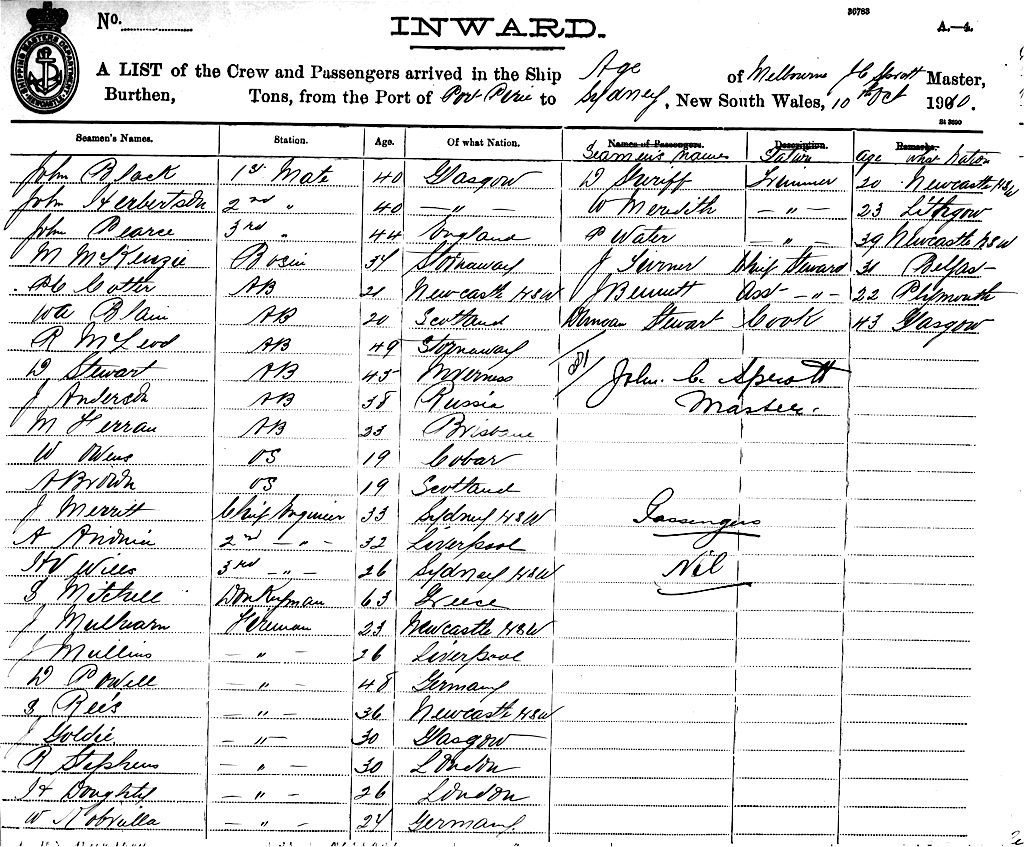 36783
No. INWARD. A.—4.
A LIST of the Crew and Passengers arrived in the Ship Age of Melbourne J C Sprott Master,
Burthen, Tons, from the Port of Port Pirie to Sydney, New South Wales, 10th Oct 1910.
SHIPPING MASTERS DEPARTMENT
St 3690
Seamen's Names. Station. Age. Of what Nation. Names of Passengers. Description. Remarks.
Seamen's names Station age what Nation
John Black 1st Mate 40 Glasgow D Trimmer 20 Newcastle NSW
John Herbertson 2nd " 40 — " — W Meredith — " — 23 Lithgow
John Pearce 3rd " 44 England P Water — " — 39 Newcastle NSW
M McKenzie Bosin 34 Stornaway J Turner Chief Steward 31 Belfast
Cotter AB 21 Newcastle NSW J Bennett Asst — " — 22 Plymouth
WA Blain AB 20 Scotland Duncan Stewart Cook 43 Glasgow
R McLeod AB 49 Stornaway
D Stewart AB 45 Inverness John. C. Sprott
J Anderson AB 38 Russia Master.
M Herran AB 23 Brisbane
W Owens OS 19 Cobar
A Brown OS 19 Scotland
J Merritt Chief Engineer 33 Sydney NSW Passengers
A 2nd — " — 32 Liverpool
HV Wills 3rd — " — 26 Sydney NSW Nil
S Mitchell Donkeyman 63 Greece
J Mulhearn Fireman 23 Newcastle NSW
J Mullins — " — 26 Liverpool
D Powell — " — 48 Germany
S Rees — " — 36 Newcastle NSW
J Goldie — " — 30 Glasgow
R Stephens — " — 30 London
H Doughty — " — 26 London
W — " — 24 Germany.